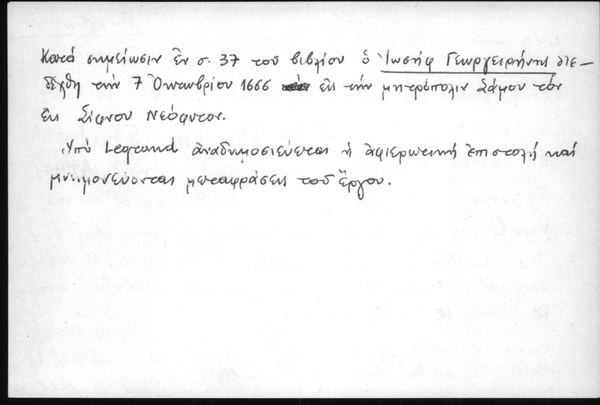 Κατὰ σημείωσιν ἐν σ. 37 τοῦ βιβλίου ὁ Ἰωσὴφ Γεωργειρήνης διε-
δέχθη τὴν 7 Ὀκτωβρίου 1666 εἰς τὴν μητρόπολιν Σάμου τὸν
ἐκ Σίφνου Νεόφυτον.
Ὑπὸ Legrand ἀναδημοσιεύεται ἡ ἀφιερωτικὴ ἐπιστολὴ καὶ
μνημονεύονται μεταφράσεις τοῦ ἔργου.